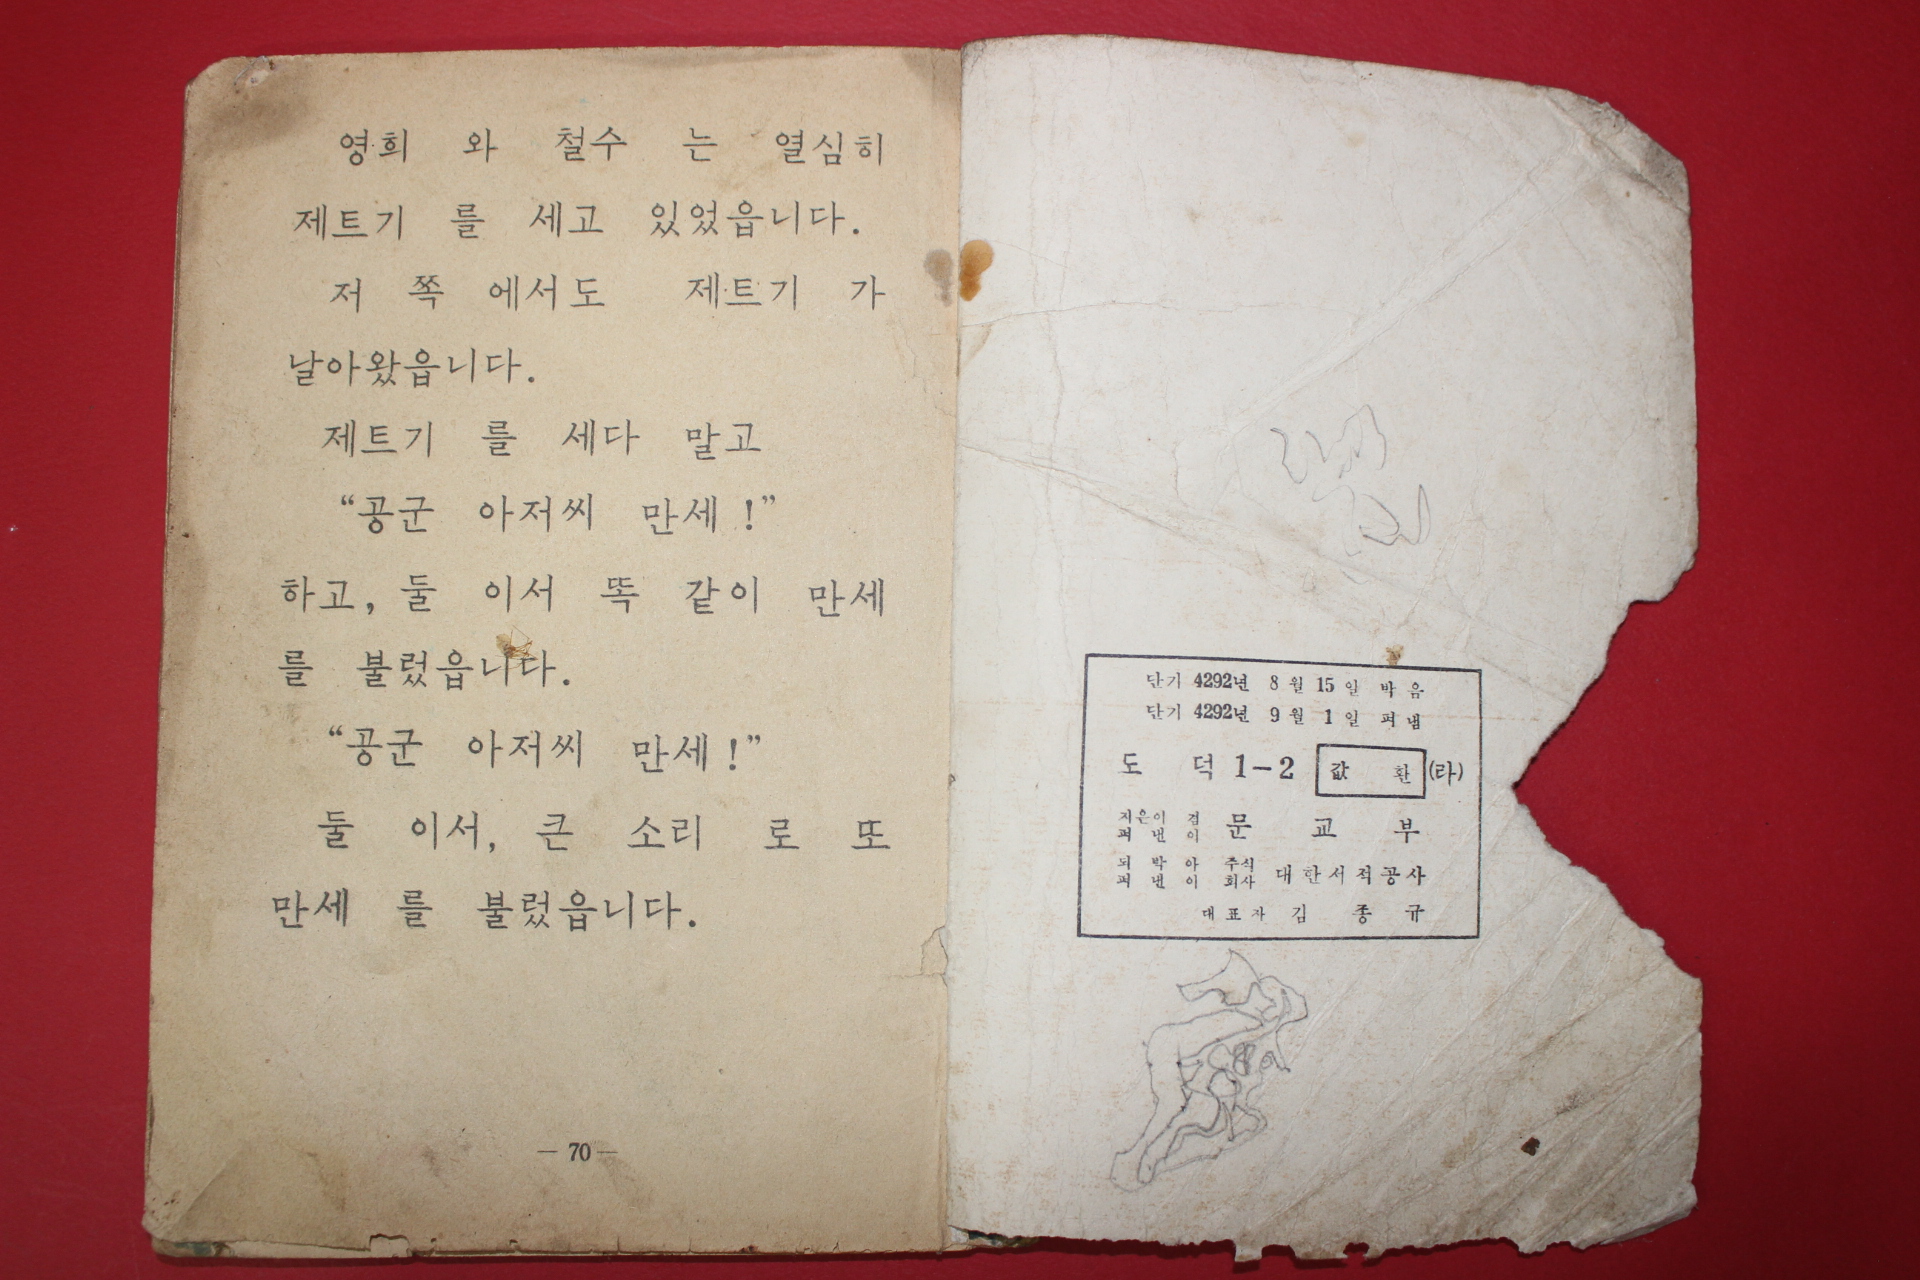 영희 와 철수 는 열심히
제트기 를 세고 있었읍니다.
저 쪽 에서도 제트기 가
날아왔읍니다.
제트기 를 세다 말고
“공군 아저씨 만세!”
하고, 둘 이서 똑 같이 만세
를 불렀읍니다.
“공군 아저씨 만세!”
둘 이서, 큰 소리 로 또
만세 를 불렀읍니다.
— 70 —
단기 4292년 8월 15일 박음
단기 4292년 9월 1일 펴냄
도 덕 1-2 값 환 (라)
지은이 겸
펴 낸 이 문 교 부
되 박 아 주식
펴 낸 이 회사 대한서적공사
대표자 김 종 규